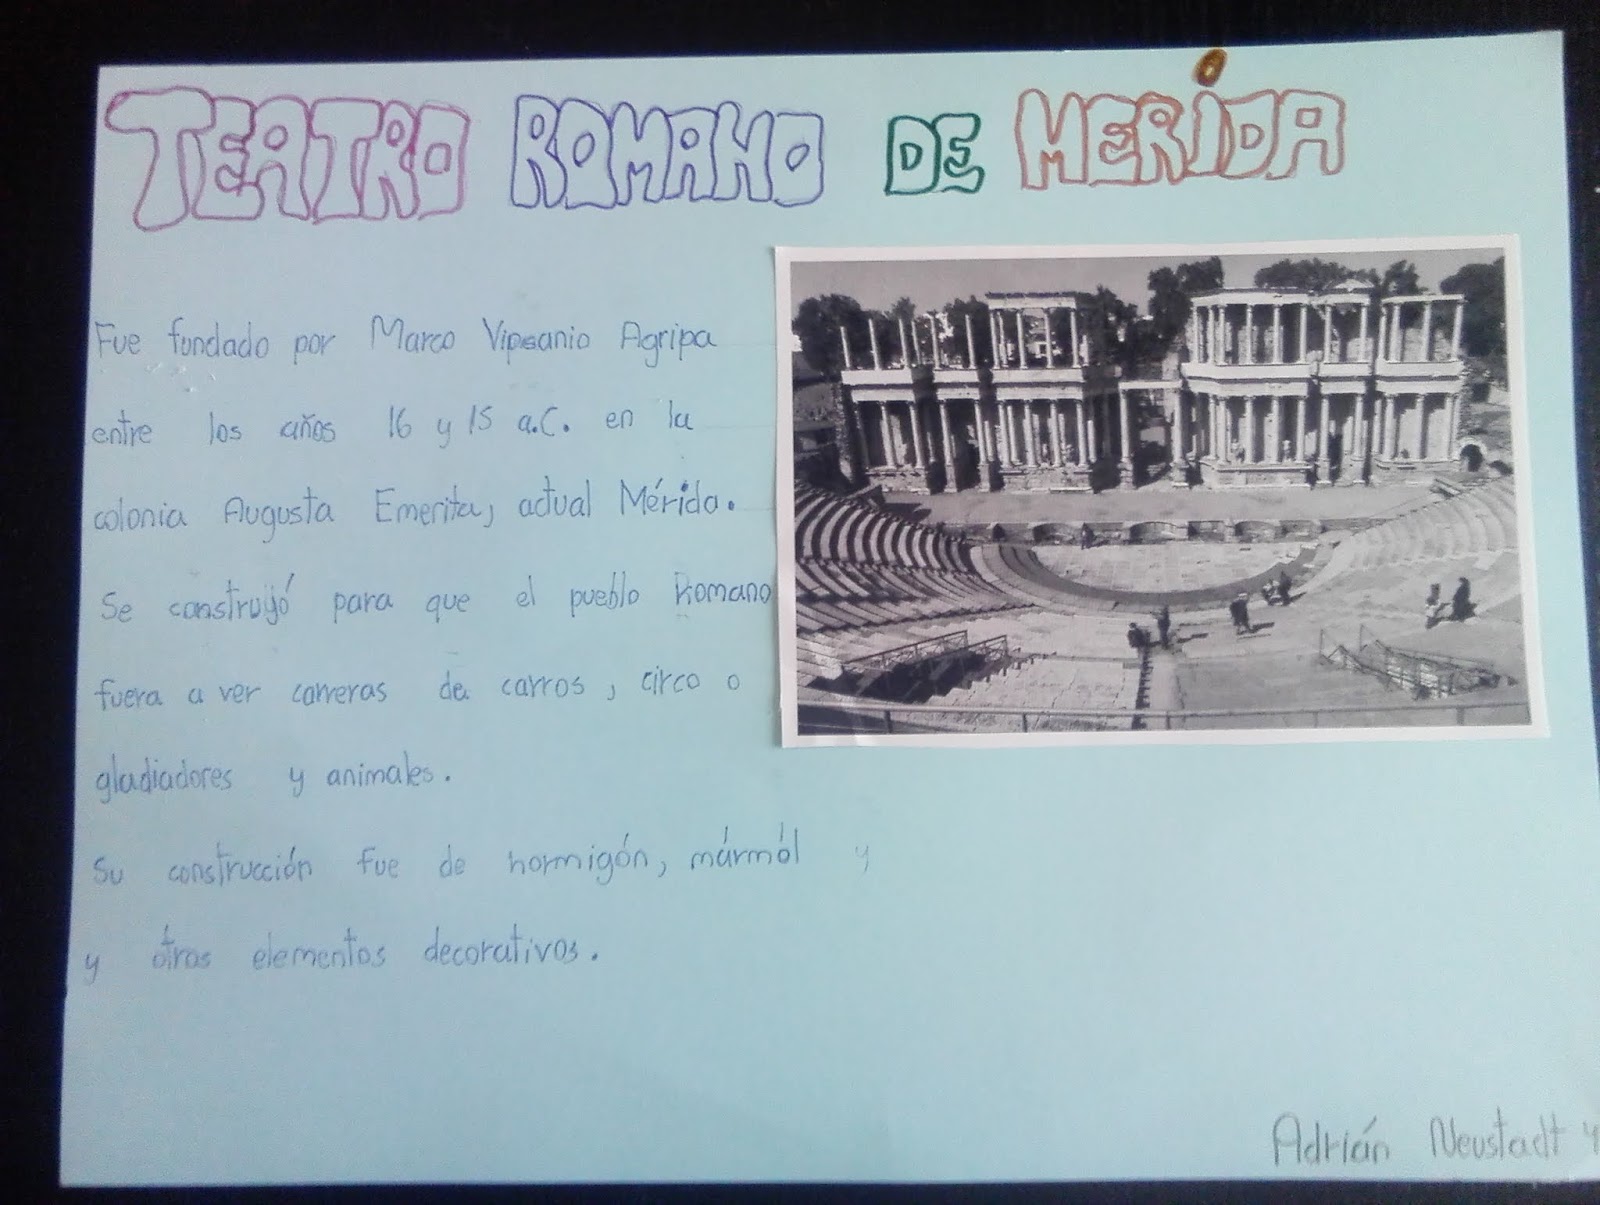 TEATRO ROMANO DE MERIDA
Fue fundado por Marco Vipsanio Agripa
entre los años 16 y 15 a.C. en la
colonia Augusta Emerita, actual Mérida.
Se construyó para que el pueblo Romano
fuera a ver carreras de carros, circo o
gladiadores y animales.
Su construcción fue de hormigón, mármól y
y ótros elementos decorativos.
Adrián Neustadt 4